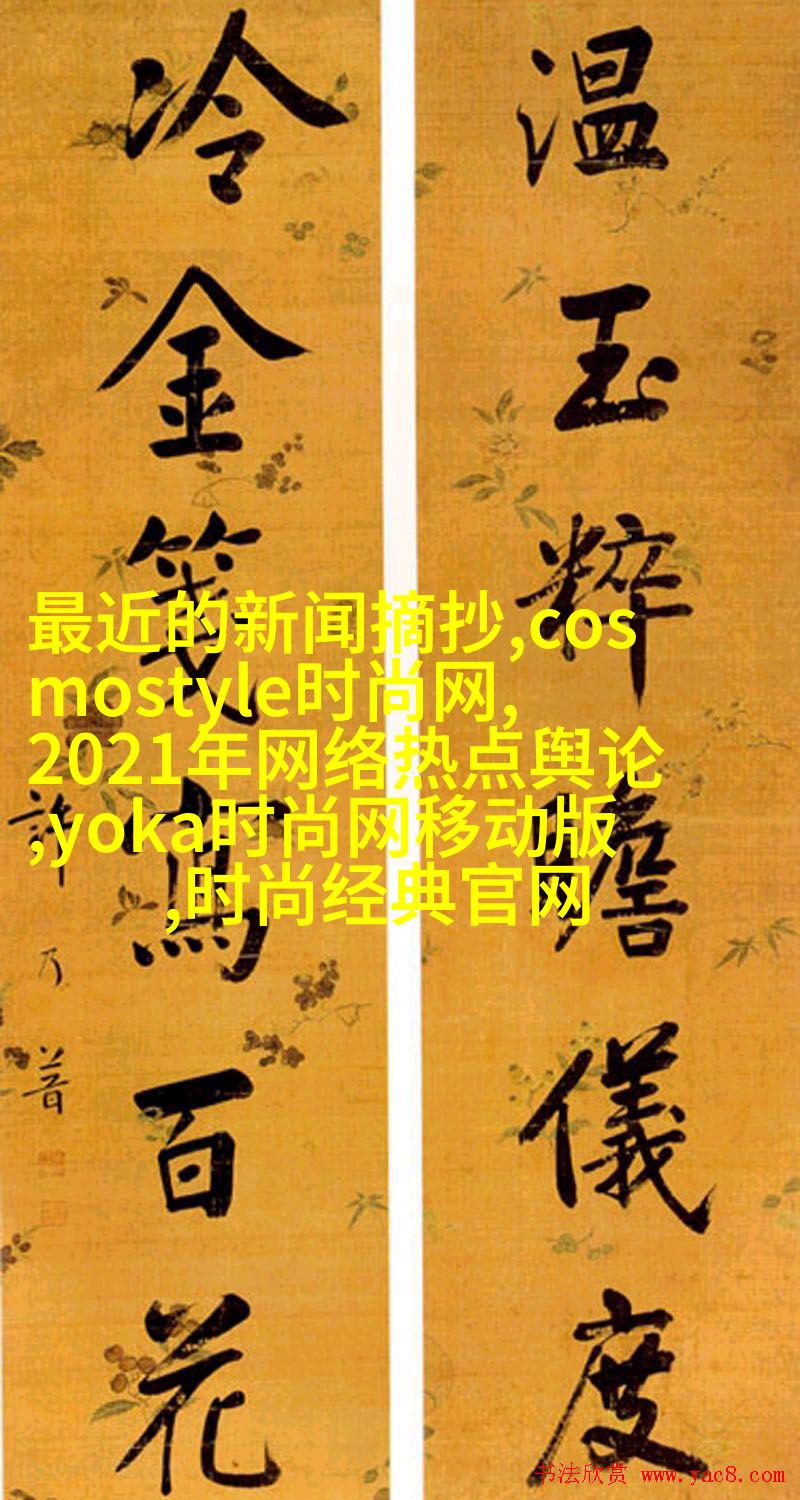 温玉粹瞻儀度
冷金箋寫百花
許乃普
最近的新闻摘抄,cos
mostyle时尚网,
2021年网络热点舆论
,yoka时尚网移动版
,时尚经典官网
书法欣赏 www.yac8.com